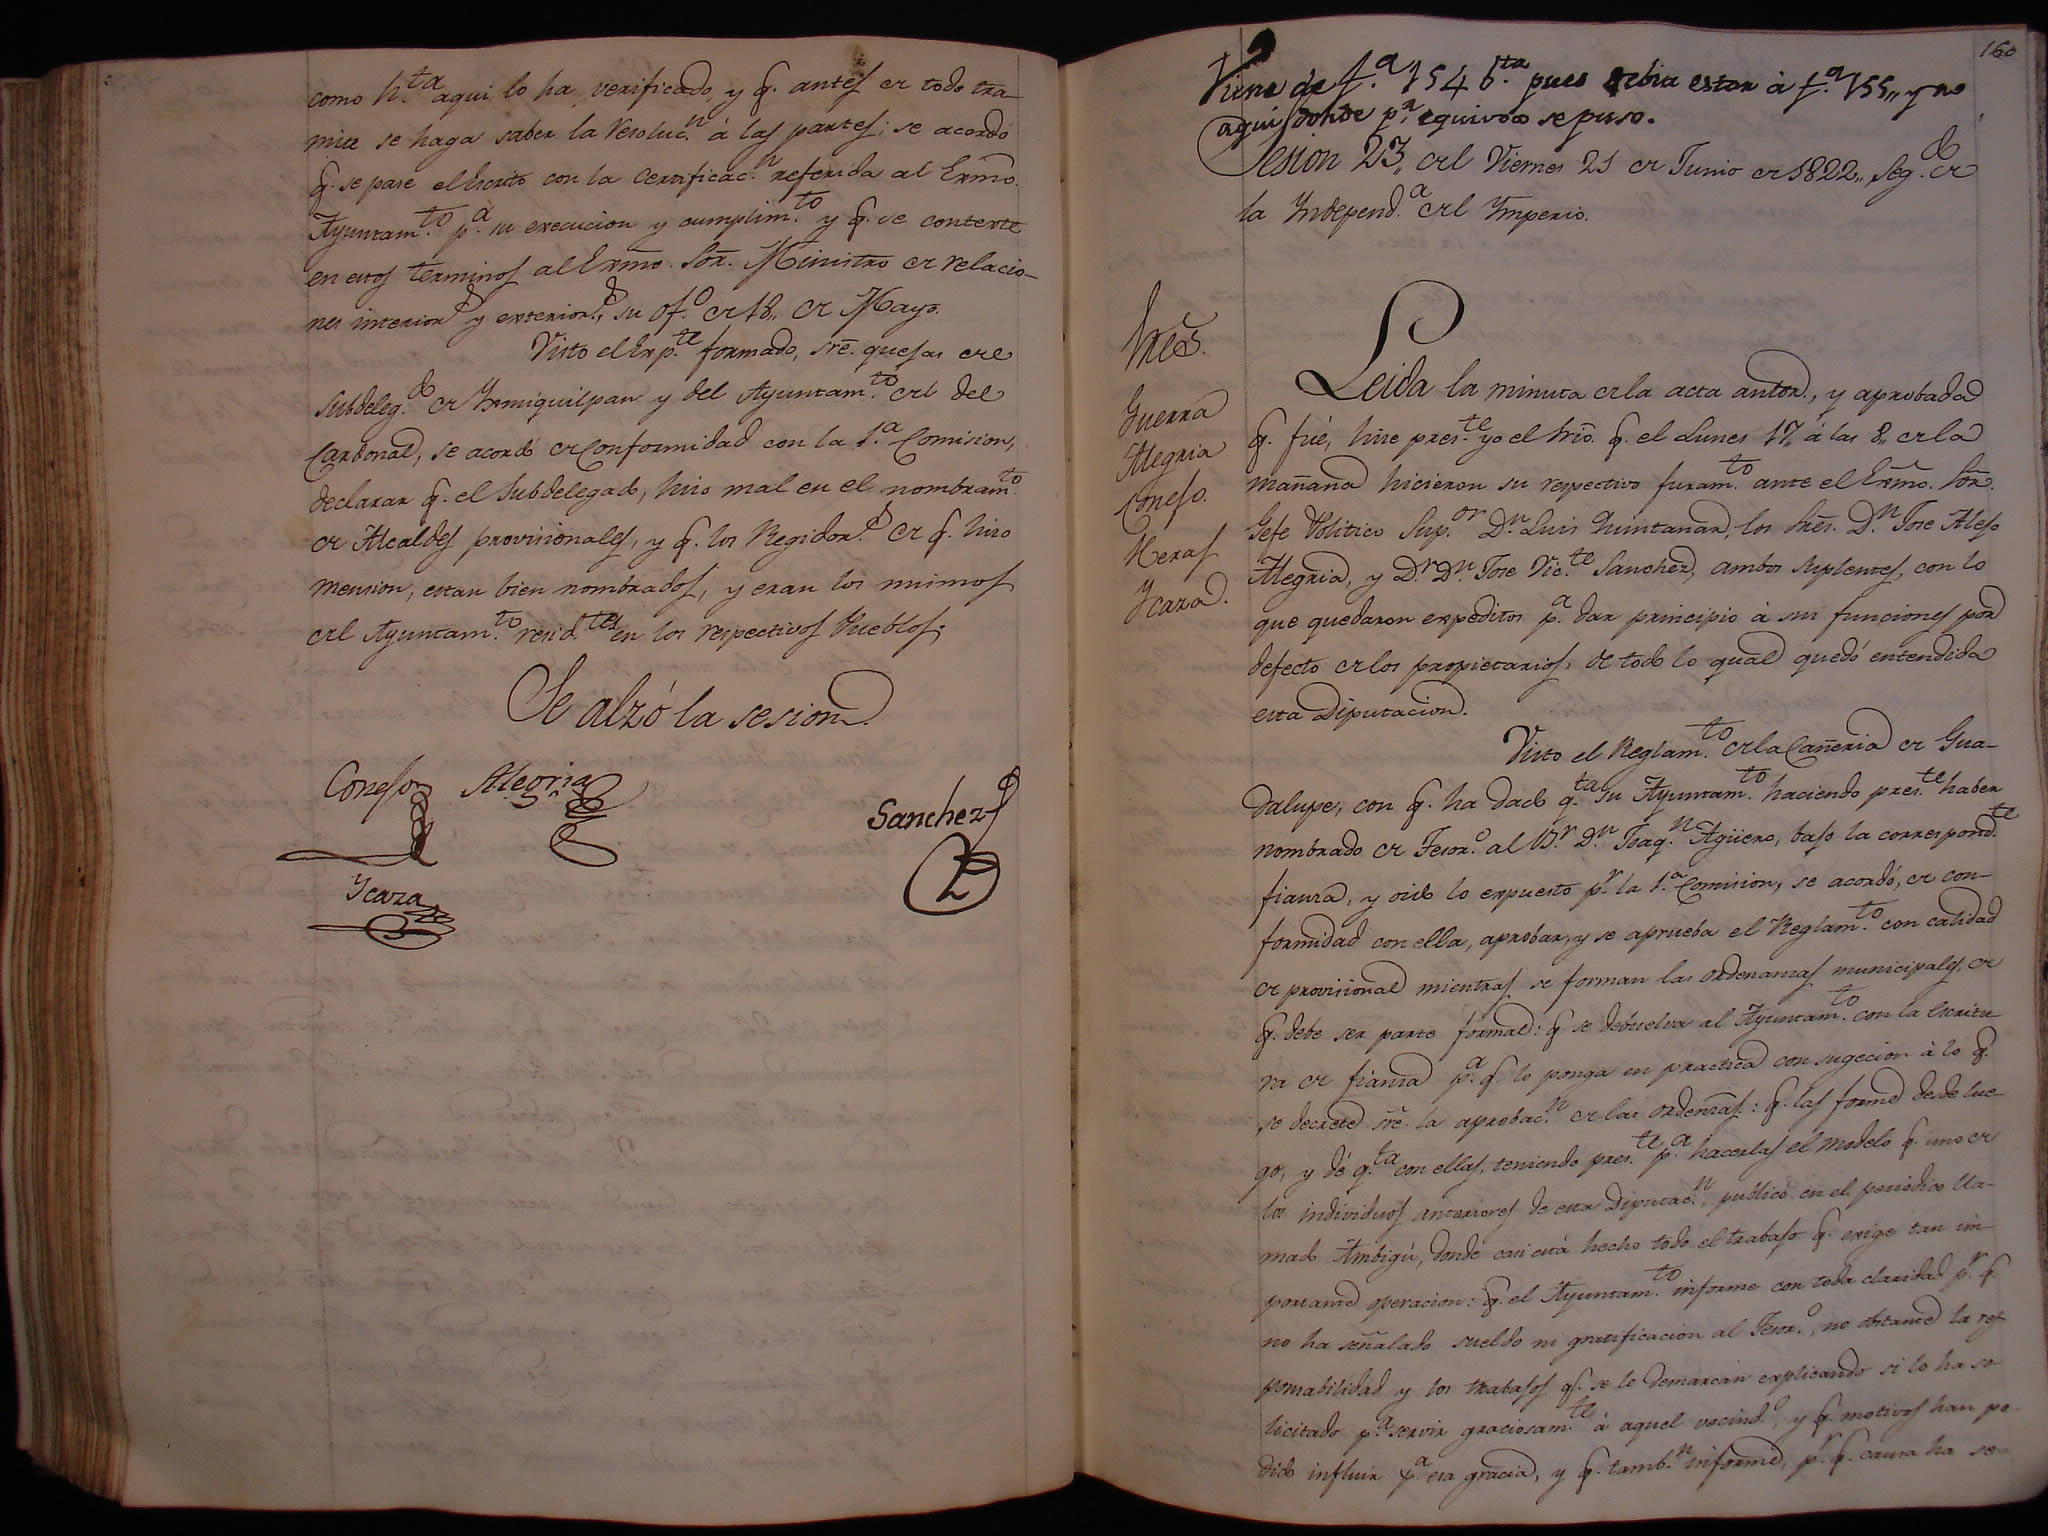 como h.ta aqui lo ha verificado, y q. antes de todo tra-
mite se haga saber la resoluc.n á las partes; se acordó
q. se pase el Escrito con la Certificac.n referida al Exmo.
Ayuntam.to p.a su execucion y cumplim.to y q. se conteste
en estos terminos al Exmo. Sõr. Ministro de relacio-
nes interior.s y exterior.s, su of.o de 18,, de Mayo.
Visto el Exp.te formado, sre. quejas del
Subdeleg.do de Yxmiquilpan y del Ayuntam.to del del
Cardonal, se acordó de conformidad con la 1.a Comision,
declarar q. el Subdelegado, hizo mal en el nombram.to
de Alcaldes provisionales, y q. los Regidor.s de q. hizo
mension, estan bien nombrados, y eran los mismos
del Ayuntam.to resid.tes en los respectivos Pueblos;
Se alzó la sesion.
Conejo Alegria
Sanchez
Ycaza
160
Viene de f.a 154 b.ta pues debia estar á f.a 155,, y no
aqui donde p.r equivoco se puso.
Sesion 23,, del Viernes 21 de Junio de 1822,, Seg.do de
la Independ.a del Ymperio.
Sres.
Guerra
Alegria
Conejo.
Heras
Ycaza.
Leida la minuta de la acta anter.r, y aprobada
q. fué, hise pres.te yo el Srio. q. el Lunes 17,, á las 8,, de la
mañana hicieron su respectivo juram.to ante el Exmo. Sõr.
Gefe Politico Sup.or D.n Luis Quintanar, los Sres. D.n Jose Alejo
Alegria, y D.r D.n Jose Vic.te Sanchez, ambos suplentes, con lo
que quedaron expeditos p.a dar principio á sus funciones por
defecto de los propietarios, de todo lo qual quedó entendida
esta Diputacion.
Visto el Reglam.to de la Cañeria de Gua-
dalupe, con q. ha dado q.ta su Ayuntam.to haciendo pres.te haber
nombrado de Tesor.o al B.r D.n Joaq.n Agüero, bajo la correspond.te
fianza, y oido lo expuesto p.r la 1.a Comision, se acordó, de con-
formidad con ella, aprobar, y se aprueba el Reglam.to con calidad
de provisional mientras se forman las ordenanzas municipales, de
q. debe ser parte formal: q. se debuelva al Ayuntam.to con la Escritu
ra de fianza p.a q. lo ponga en practica con sugecion á lo q.
se decrete sre. la aprobac.n de las ordenzas.: q. las forme desde lue-
go, y dé q.ta con ellas, teniendo pres.te p.a hacerlas el modelo q. uno de
los individuos anteriores de esta Diputac.n publicó en el periodico lla-
mado Ambigú, donde casi está hecho todo el trabajo q. exige tan im-
portante operacion: q. el Ayuntam.to informe con toda claridad p.r q.
no ha señalado sueldo ni gratificacion al Tesor.o, no obstante la res
ponsabilidad y los trabajos q. se le demarcan explicando si lo ha so
licitado p.a servir graciosam.te á aquel vecind.o, y q. motivos han po-
dido influir p.a esa gracia, y q. tamb.n informe, p.r q. causa ha se-